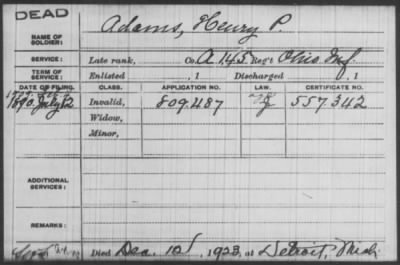 DEAD
NAME OF SOLDIER: Adams, Henry P.
SERVICE: Late rank, Co. A 145 Reg't Ohio Inf.
TERM OF SERVICE: Enlisted , 1 Discharged , 1
DATE OF FILING. CLASS. APPLICATION NO. LAW. CERTIFICATE NO.
1890. July 12 Invalid, 809.487 557.342
Widow,
Minor,
ADDITIONAL SERVICES:
REMARKS:
Died Dec. 10, 1923, at Detroit, Mich.